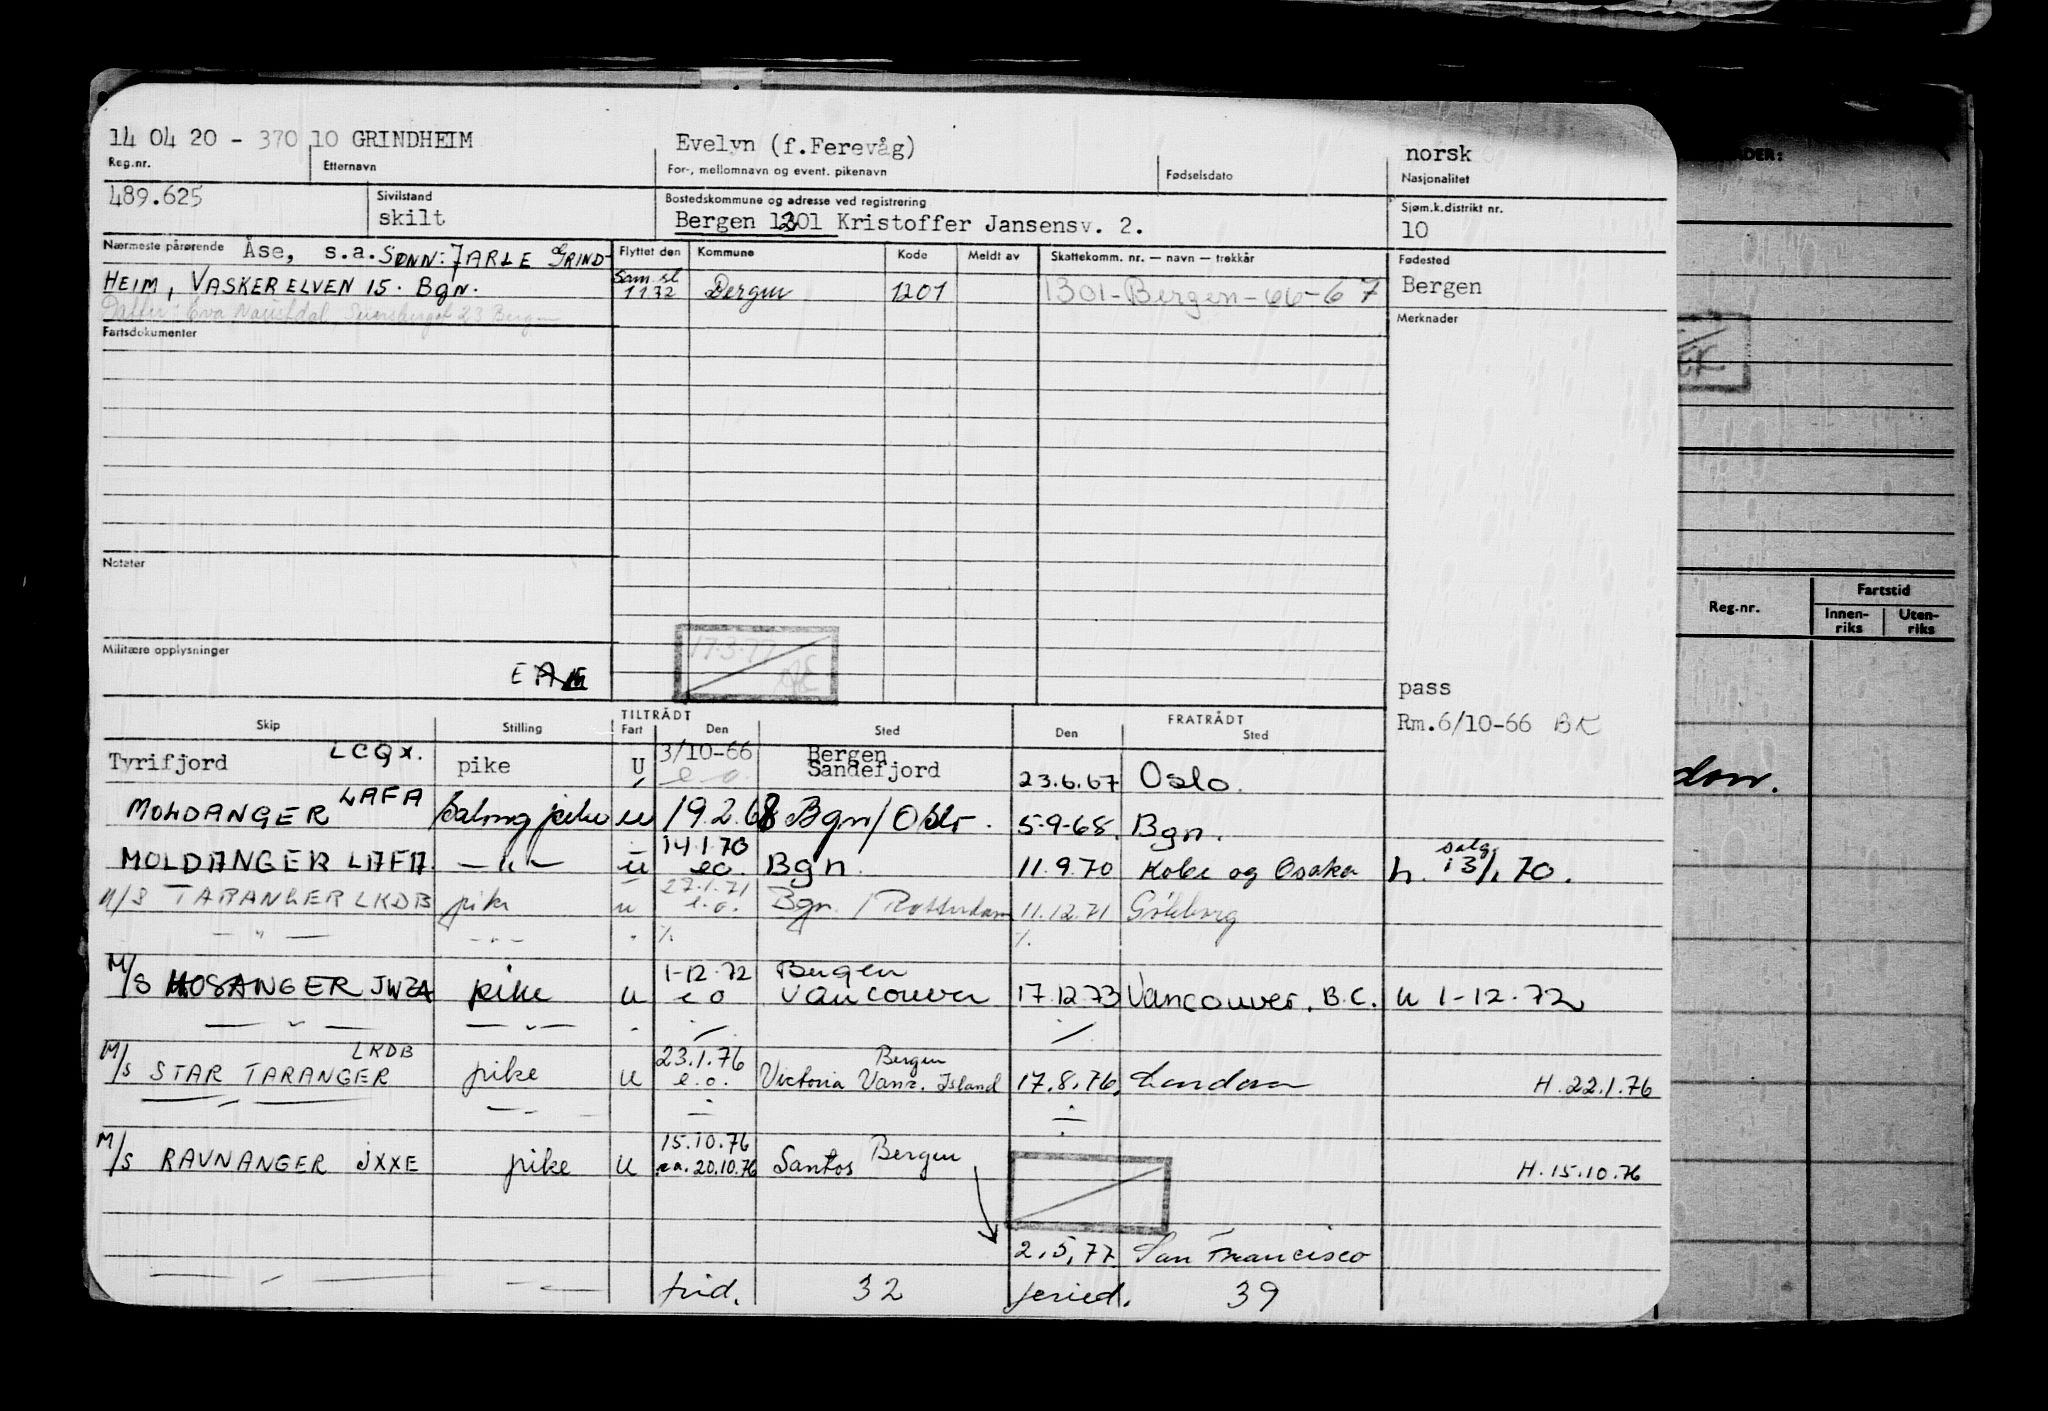 14 04 20 - 370 10 GRINDHEIM Evelyn (f.Ferevåg) norsk
Reg.nr. Etternavn For-, mellomnavn og event. pikenavn Fødselsdato Nasjonalitet
489.625 Sivilstand Bostedskommune og adresse ved registrering Sjøm.k.distrikt nr.
skilt Bergen 1301 Kristoffer Jansensv. 2. 10
Nærmeste pårørende Åse, s.a. SØNN: JARLE GRIND- Flyttet den Kommune Kode Meldt av Skattekomm. nr. — navn — trekkår Fødested
HEIM, VASKERELVEN 15. Bgn. 1172 Bergen 1201 1301-Bergen-66-67 Bergen
Datter: Eva 23 Bergen
Fartsdokumenter Merknader
Notater
Militære opplysninger
17.3.77
pass
Rm.6/10-66 BK
Skip Stilling TILTRÅDT Fart Den Sted FRATRÅDT Den Sted
Tyrifjord LCQX. pike U 3/10-66 e.o. Bergen Sandefjord 23.6.67 Oslo.
MOLDANGER LAFA Salong pike u 19.2.68 Bgn/Oslo. 5-9-68. Bgn.
MOLDANGER LAFA — " — u 14.1.70 eo. Bgn. 11.9.70 Kobe og Osaka h. 13/1 70.
M/S TARANGER LKDB pike u 27.1.71 e.o. Bgn. / Rotterdam 11.12.71 Göteborg
— " — — " — " ./. ./.
M/S HOSANGER JWZA pike u 1-12-72 e o Bergen Vancouver 17.12.73 Vancouver. B.C. u 1-12-72
— " — — " — " ./. ./.
M/S STAR TARANGER LKDB pike u 23.1.76 e.o. Bergen Victoria Vanc. Island 17.8.76. London H. 22.1.76
M/S RAVNANGER JXXE pike u 15.10.76 ea. 20.10.76 Bergen Santos H. 15.10.76
2.5.77 San Francisco
frid. 32 feried. 39
Reg.nr. Fartstid
Innen-riks Uten-riks